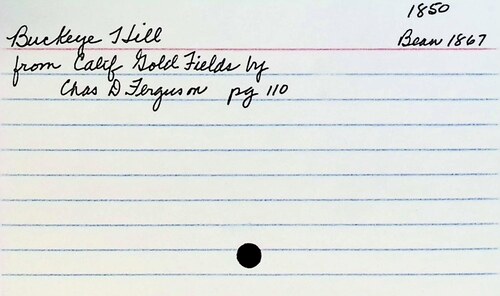 1850
Buckeye Hill Bean 1867
from Calif Gold Fields by
Chas D Ferguson pg 110